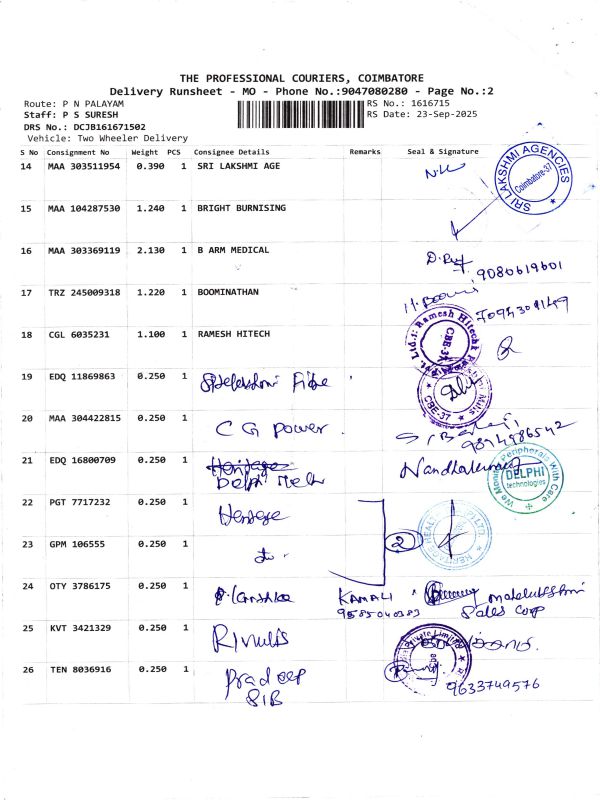 THE PROFESSIONAL COURIERS, COIMBATORE
Delivery Runsheet - MO - Phone No.:9047080280 - Page No.:2
Route: P N PALAYAM RS No.: 1616715
Staff: P S SURESH RS Date: 23-Sep-2025
DRS No.: DCJB161671502
Vehicle: Two Wheeler Delivery
S No Consignment No Weight PCS Consignee Details Remarks Seal & Signature
14 MAA 303511954 0.390 1 SRI LAKSHMI AGE
SRI LAKSHMI AGENCIES Coimbatore-37
15 MAA 104287530 1.240 1 BRIGHT BURNISING
16 MAA 303369119 2.130 1 B ARM MEDICAL
9080619601
17 TRZ 245009318 1.220 1 BOOMINATHAN
18 CGL 6035231 1.100 1 RAMESH HITECH
Ramesh Hitech CBE-37
19 EDQ 11869863 0.250 1 Fibre
CBE-37
20 MAA 304422815 0.250 1 C G Power.
9894986542
21 EDQ 16800709 0.250 1 Heritage
Delphi Tech Nandhakumar
We Monitor Peripherals With Care DELPHI technologies
22 PGT 7717232 0.250 1 Heritage
23 GPM 106555 0.250 1 2
24 OTY 3786175 0.250 1 KAMALI Mahalakshmi
9585040383 Sales Corp
25 KVT 3421329 0.250 1
Private Limited
26 TEN 8036916 0.250 1 Pradeep
SIB 9633749576